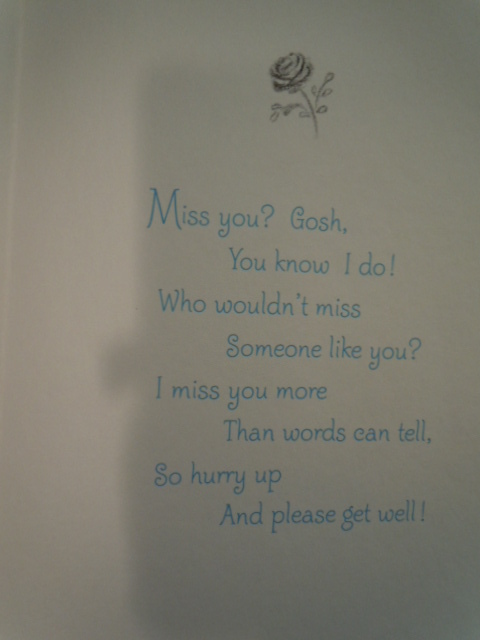 Miss you? Gosh,
You know I do!
Who wouldn't miss
Someone like you?
I miss you more
Than words can tell,
So hurry up
And please get well!